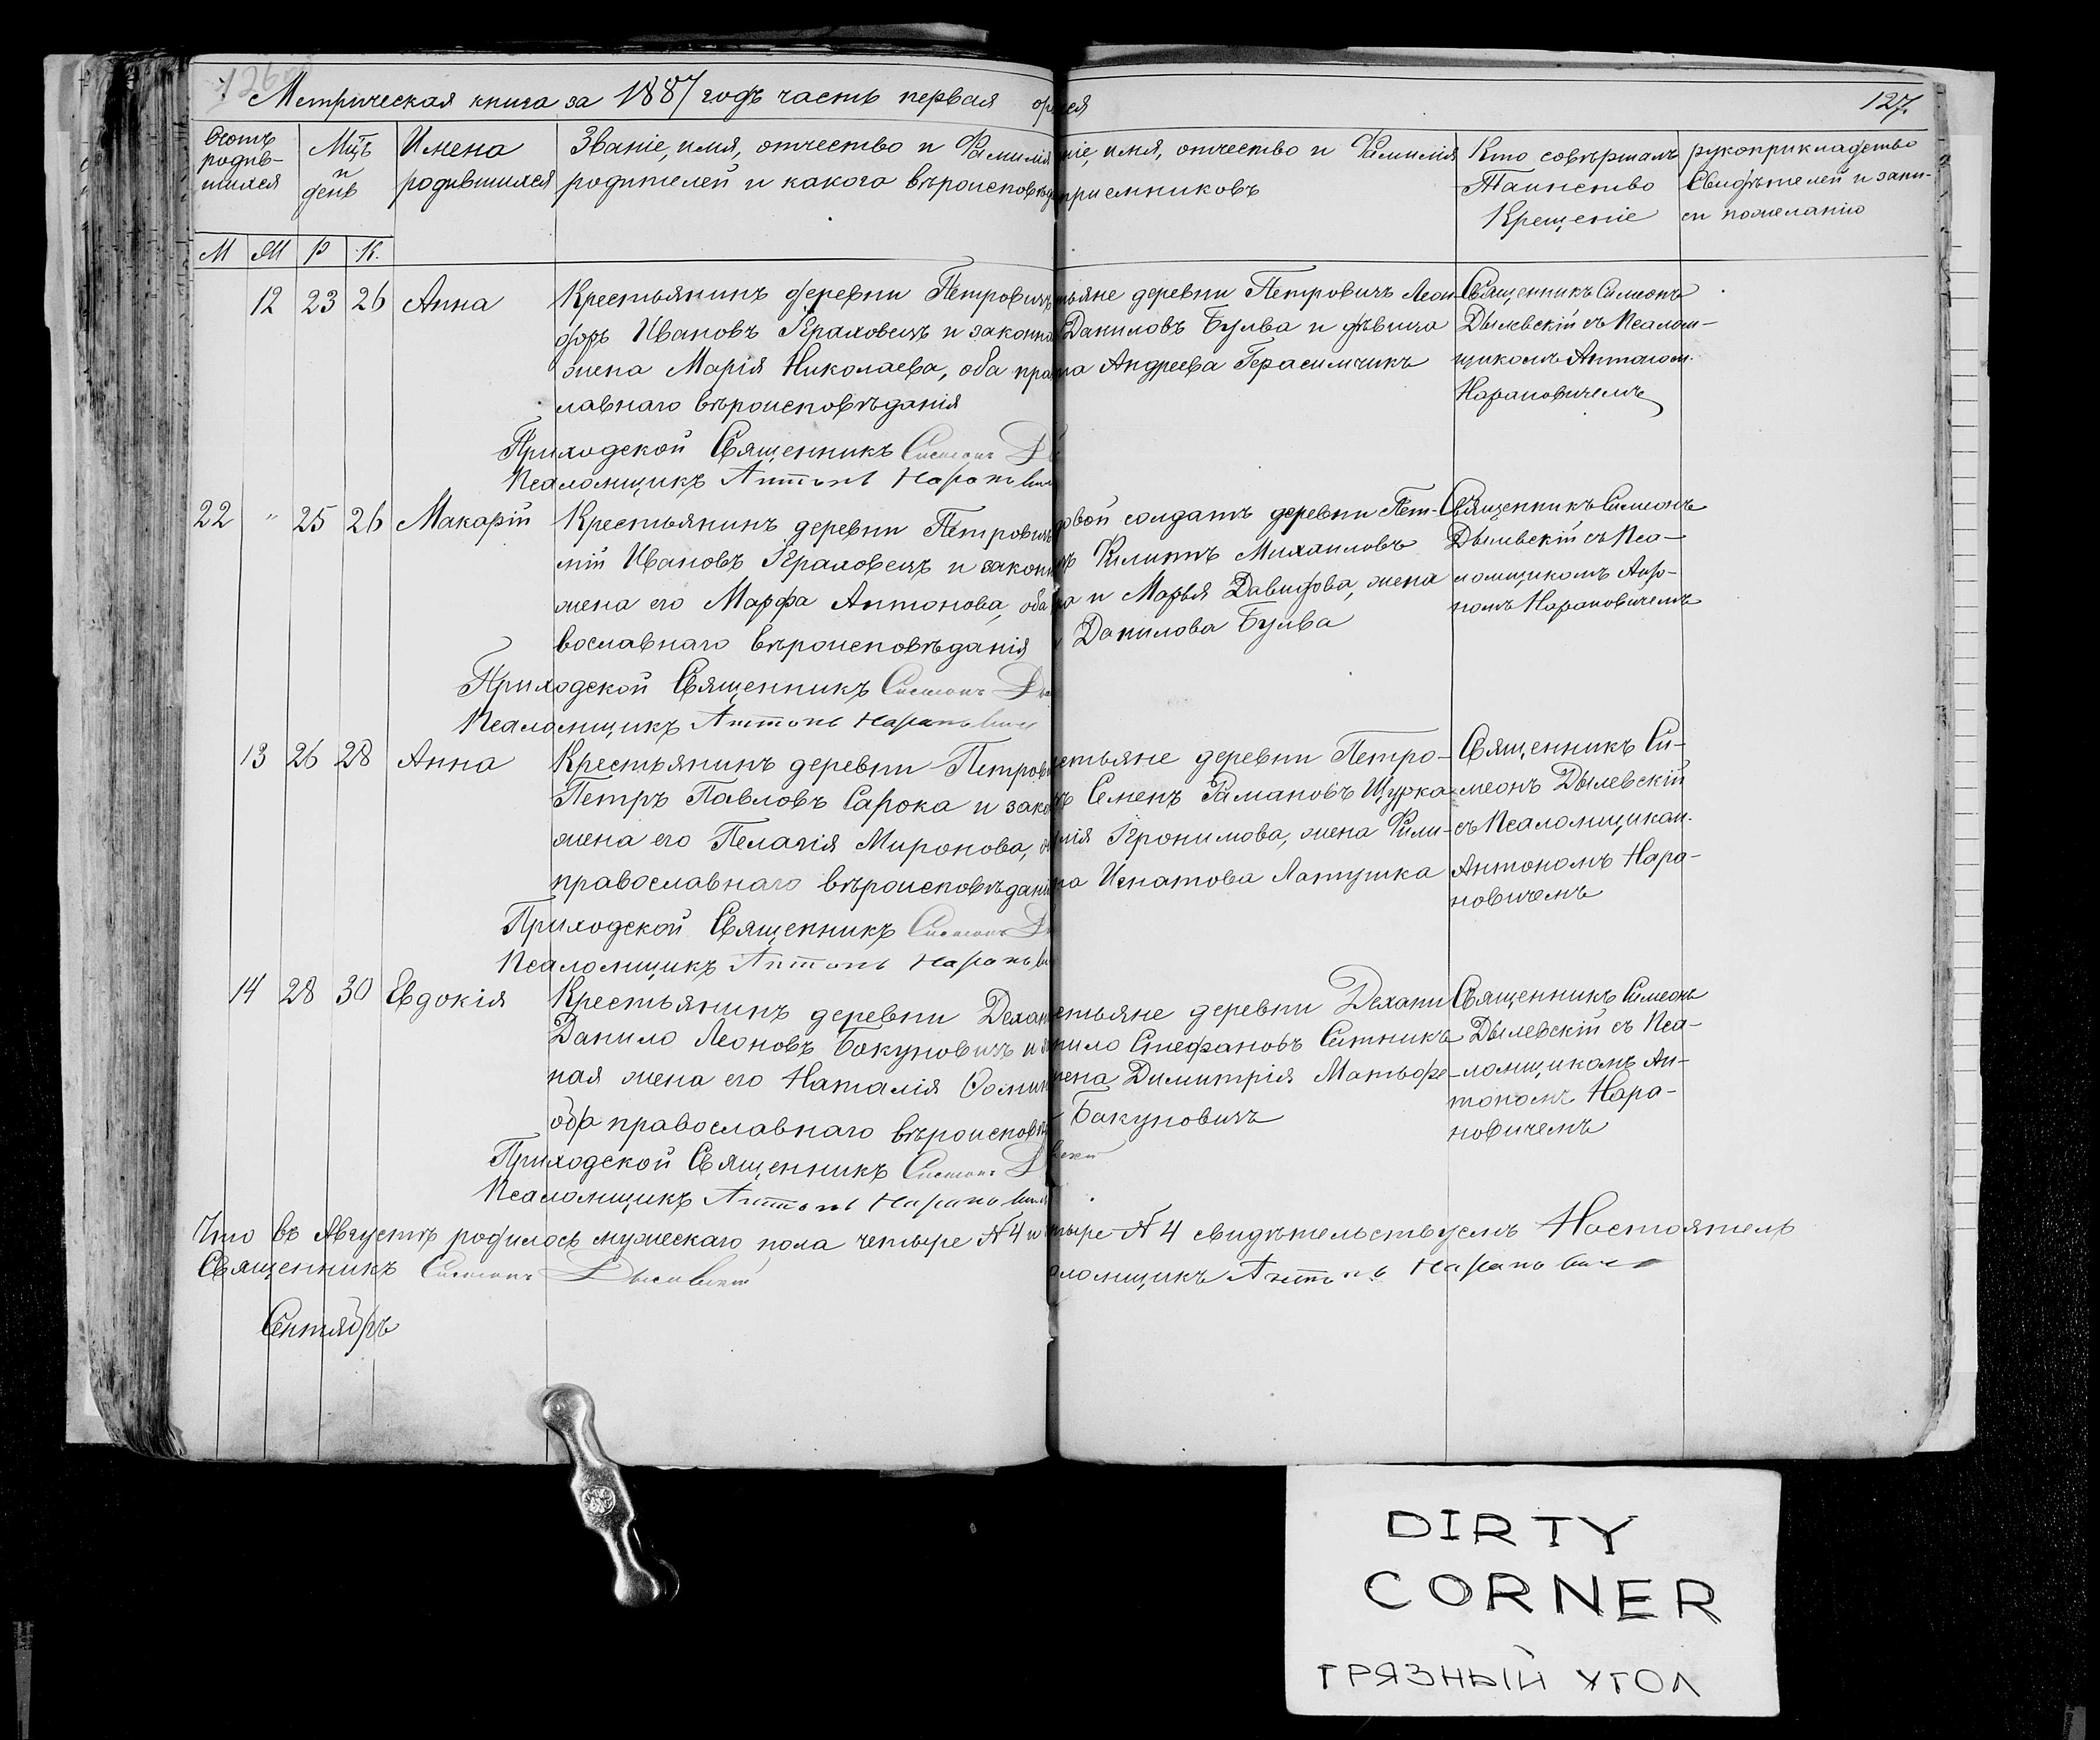 Метрическая книга за 1887 годъ часть первая
127.
Счетъ родив-шихся
Мцъ и день
Имена родившихся
Званіе, имя, отчество и Фамилія
родителей и какого вѣроисповѣд
ніе, имя, отчество и Фамилія
пріемниковъ
Кто совѣршалъ
Таинство
Крещеніе
рукоприкладство
Свидѣтелей и запи-
си пожеланію
М Ж Р К.
12 23 26 Анна
Крестьянинъ деревни Петровичъ
форъ Ивановъ Краховецъ и законна
жена Марія Николаева, оба пра
лавнаго вѣроисповѣданія
Приходской Священникъ Симеонъ
Псаломщикъ Антонъ Нарановичъ
тьяне деревни Петровичъ Леон
Даниловъ Булва и дѣвица
на Андреева Герасимчикъ
Священникъ Симеонъ
Дылевскій съ Псалом-
щикомъ Антоном.
Нарановичемъ
22 " 25 26 Макарій
Крестьянинъ деревни Петровичъ
мій Ивановъ Краховецъ и закон
жена его Марфа Антонова, оба
вославнаго вѣроисповѣданія
Приходской Священникъ Симеонъ
Псаломщикъ Антонъ Нарановичъ
довой солдатъ деревни Пет-
Филипъ Михаиловъ
на и Марья Давидова, жена
Данилова Булва
Священникъ Симеонъ
Дылевскій съ Пса-
ломщикомъ Анто-
номъ Нарановичемъ
13 26 28 Анна
Крестьянинъ деревни Петрови
Петръ Павловъ Сарока и зако
жена его Пелагія Миронова,
православнаго вѣроисповѣдані
Приходской Священникъ Симеонъ
Псаломщикъ Антонъ Нарановичъ
стьяне деревни Петро-
Семенъ Рамановъ Щурка
лія Іеронимова, жена Фили-
па Игнатова Латушка
Священникъ Си-
меонъ Дылевскій
съ Псаломщиком.
Антономъ Нара-
новичемъ
14 28 30 Евдокія
Крестьянинъ деревни Дехан
Данило Леоновъ Бакуновичъ и
ная жена его Наталія Фомин
оба православнаго вѣроисповѣ
Приходской Священникъ Симеонъ
Псаломщикъ Антонъ Нарановичъ
стьяне деревни Дехани
нило Стефановъ Ситникъ
жена Димитрія Матьфе-
Бакуновичъ
Священникъ Симеонъ
Дылевскій съ Пса-
ломщикомъ Ан-
тономъ Нара-
новичемъ
Что въ Августѣ родилось мужескаго пола четыре № 4 и
тыре № 4 свидѣтельствуемъ Настоятель
Священникъ Симеонъ Дылевскій
аломщикъ Антонъ Нарановичъ
Сентябрь
DIRTY
CORNER
ГРЯЗНЫЙ УГОЛ